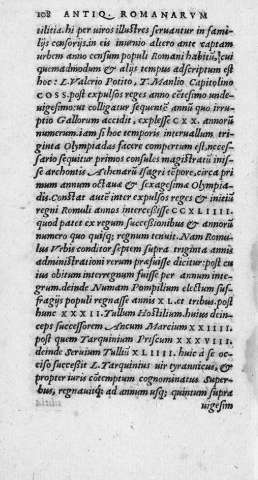 108 ANTIQ. ROMANARVM
tilitia. hi per uiros illustres seruantur in fami-
lijs censorijs. in eis inuenio altero ante captam
urbem anno censum populi Romani habitũ, cui
quemadmodum & alijs tempus adscriptum est
hoc: L. Valerio Potito, T. Manlio Capitolino
COSS. post expulsos reges anno cẽtesimo unde-
uigesimo: ut colligatur sequentẽ annũ quo irru-
ptio Gallorum accidit, explesse CXX. annorũ
numerum. iam si hoc temporis interuallum, tri-
ginta Olympiadas facere compertum est, neces-
sario sequitur primos consules magistratũ inis-
se archontis Athenarũ Isagrẽ tẽpore, circa pri
mum annum octauæ & sexagesimæ Olympia-
dis. Constat autẽ inter expulsos reges & initiũ
regni Romuli annos intercessisse CCXLIIII.
quod patet ex regum successionibus & annorũ
numero quo quisq; regnum tenuit. Nam Romu-
lus Vrbis conditor septem supra triginta annis
administrationi rerum præfuisse dicitur: post cu
ius obitum interregnum fuisse per annum inte-
grum. deinde Numam Pompilium electum suf-
fragijs populi regnasse annis XL. et tribus. post
hunc XXXII. Tullum Hostilium. huius dein-
ceps successorem Ancum Marcium XXIIII.
post quem Tarquinium Priscum XXXVIII.
deinde Seruium Tulliũ XLIIII. huic à se oc-
ciso successit L. Tarquinius uir tyrannicus, &
propter iuris cõtemptum cognominatus Super-
bus, regnauitq; ad annum usq; quintum supra
uigesim